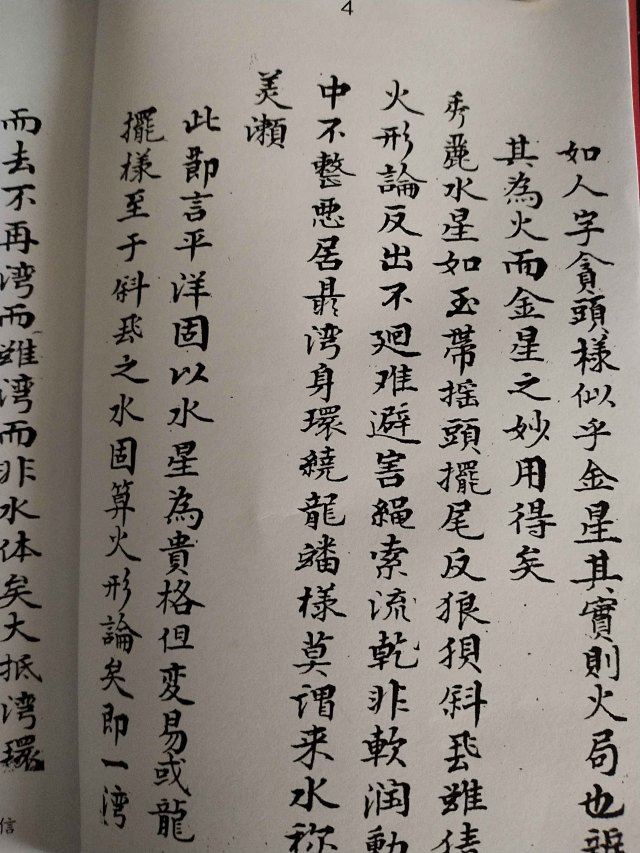 4
如人字貪頭樣似乎金星其實則火局也辨
其為火而金星之妙用得矣
秀麗水星如玉帶摇頭擺尾反狼狽斜飛雖倩
火形論反出不廻难避害繩索流乾非軟润動
中不整悪居最湾身環繞龍蟠樣莫謂来水称
美瀬
此節言平洋固以水星為貴格但変易或龍
擺樣至于斜飛之水固算火形論矣即一湾
而去不再湾而雖湾而非水体矣大抵湾環
信